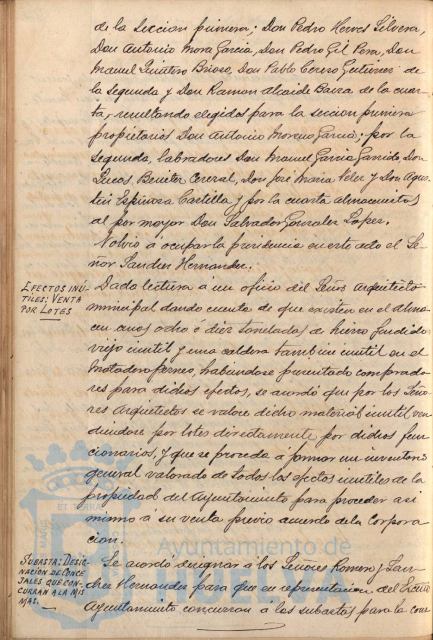 de la Seccion primera; Don Pedro Herves Silvera,
Don Antonio Mora Garcia, Don Pedro Gil Pera, Don
Manuel Quintero Brioso, Don Pablo Cerero Gutierrez de
la Segunda y Don Ramon Alcaide Baira de la cuar-
ta, resultando elegidos para la seccion primera
propietarios Don Antonio Moreno Garcia; por la
Segunda, labradores Don Manuel Garcia Garrido, Don
Lucas Benitez Cereral, Don José Maria Velez y Don Agus-
tin Espinosa Castilla y por la cuarta almacenistas
al por mayor Don Salvador Gonzalez Lopez.
Volvió á ocupar la presidencia en este acto el Se-
ñor Sanchez Hernandez.
EFECTOS INÚ-
TILES; VENTA
POR LOTES
Dada lectura á un oficio del Señor Arquitecto
municipal dando cuenta de que existen en el Alma-
cen unos ocho ó diez toneladas de hierro fundido
viejo inutil y una caldera tambien inutil en el
Matadero, habiendose presentado comprado-
res para dichos efectos, se acordó que por los Seño-
res Arquitectos se valore dicho material inutil ven-
diendose por lotes directamente por dichos fun-
cionarios, y que se proceda a formar un inventario
general valorado de todos los efectos inutiles de la
propiedad del Ayuntamiento para proceder asi
mismo á su venta previo acuerdo de la Corpora-
cion.
SUBASTA; DESIG-
NACION DE CONCE-
JALES QUE CON-
CURRAN A LA MIS
MAS.
Se acordó designar á los Señores Romero y San-
chez Hernandez para que en representacion del Excmo
Ayuntamiento concurran á las subastas para la con-
Ayuntamiento de